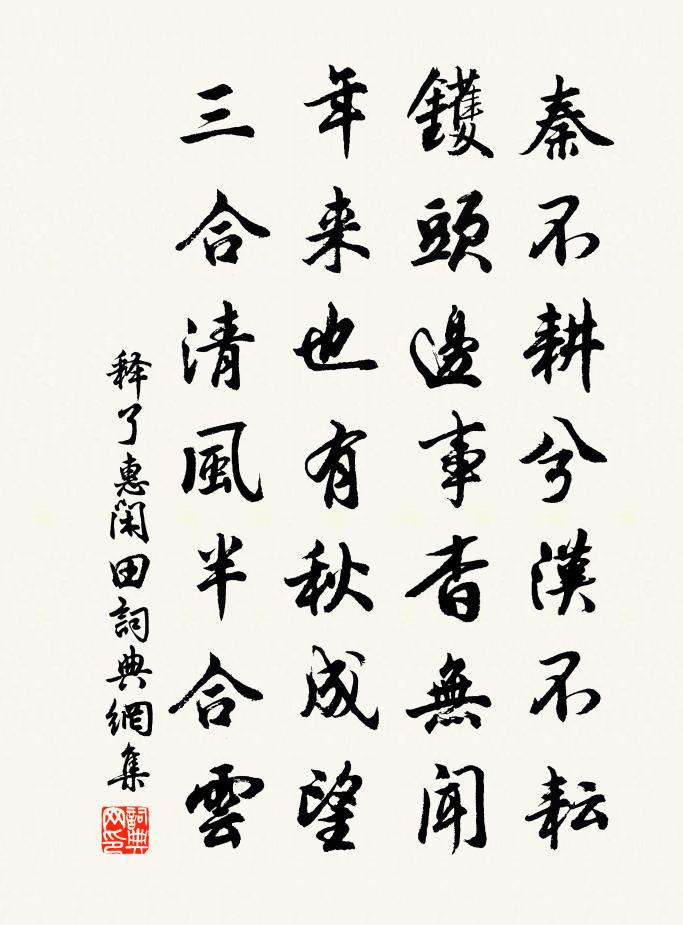 秦不耕兮漢不耘
钁頭邊事杳無聞
年来也有秋成望
三合清風半合雲
释了惠閑田詞典網集
詞典网印